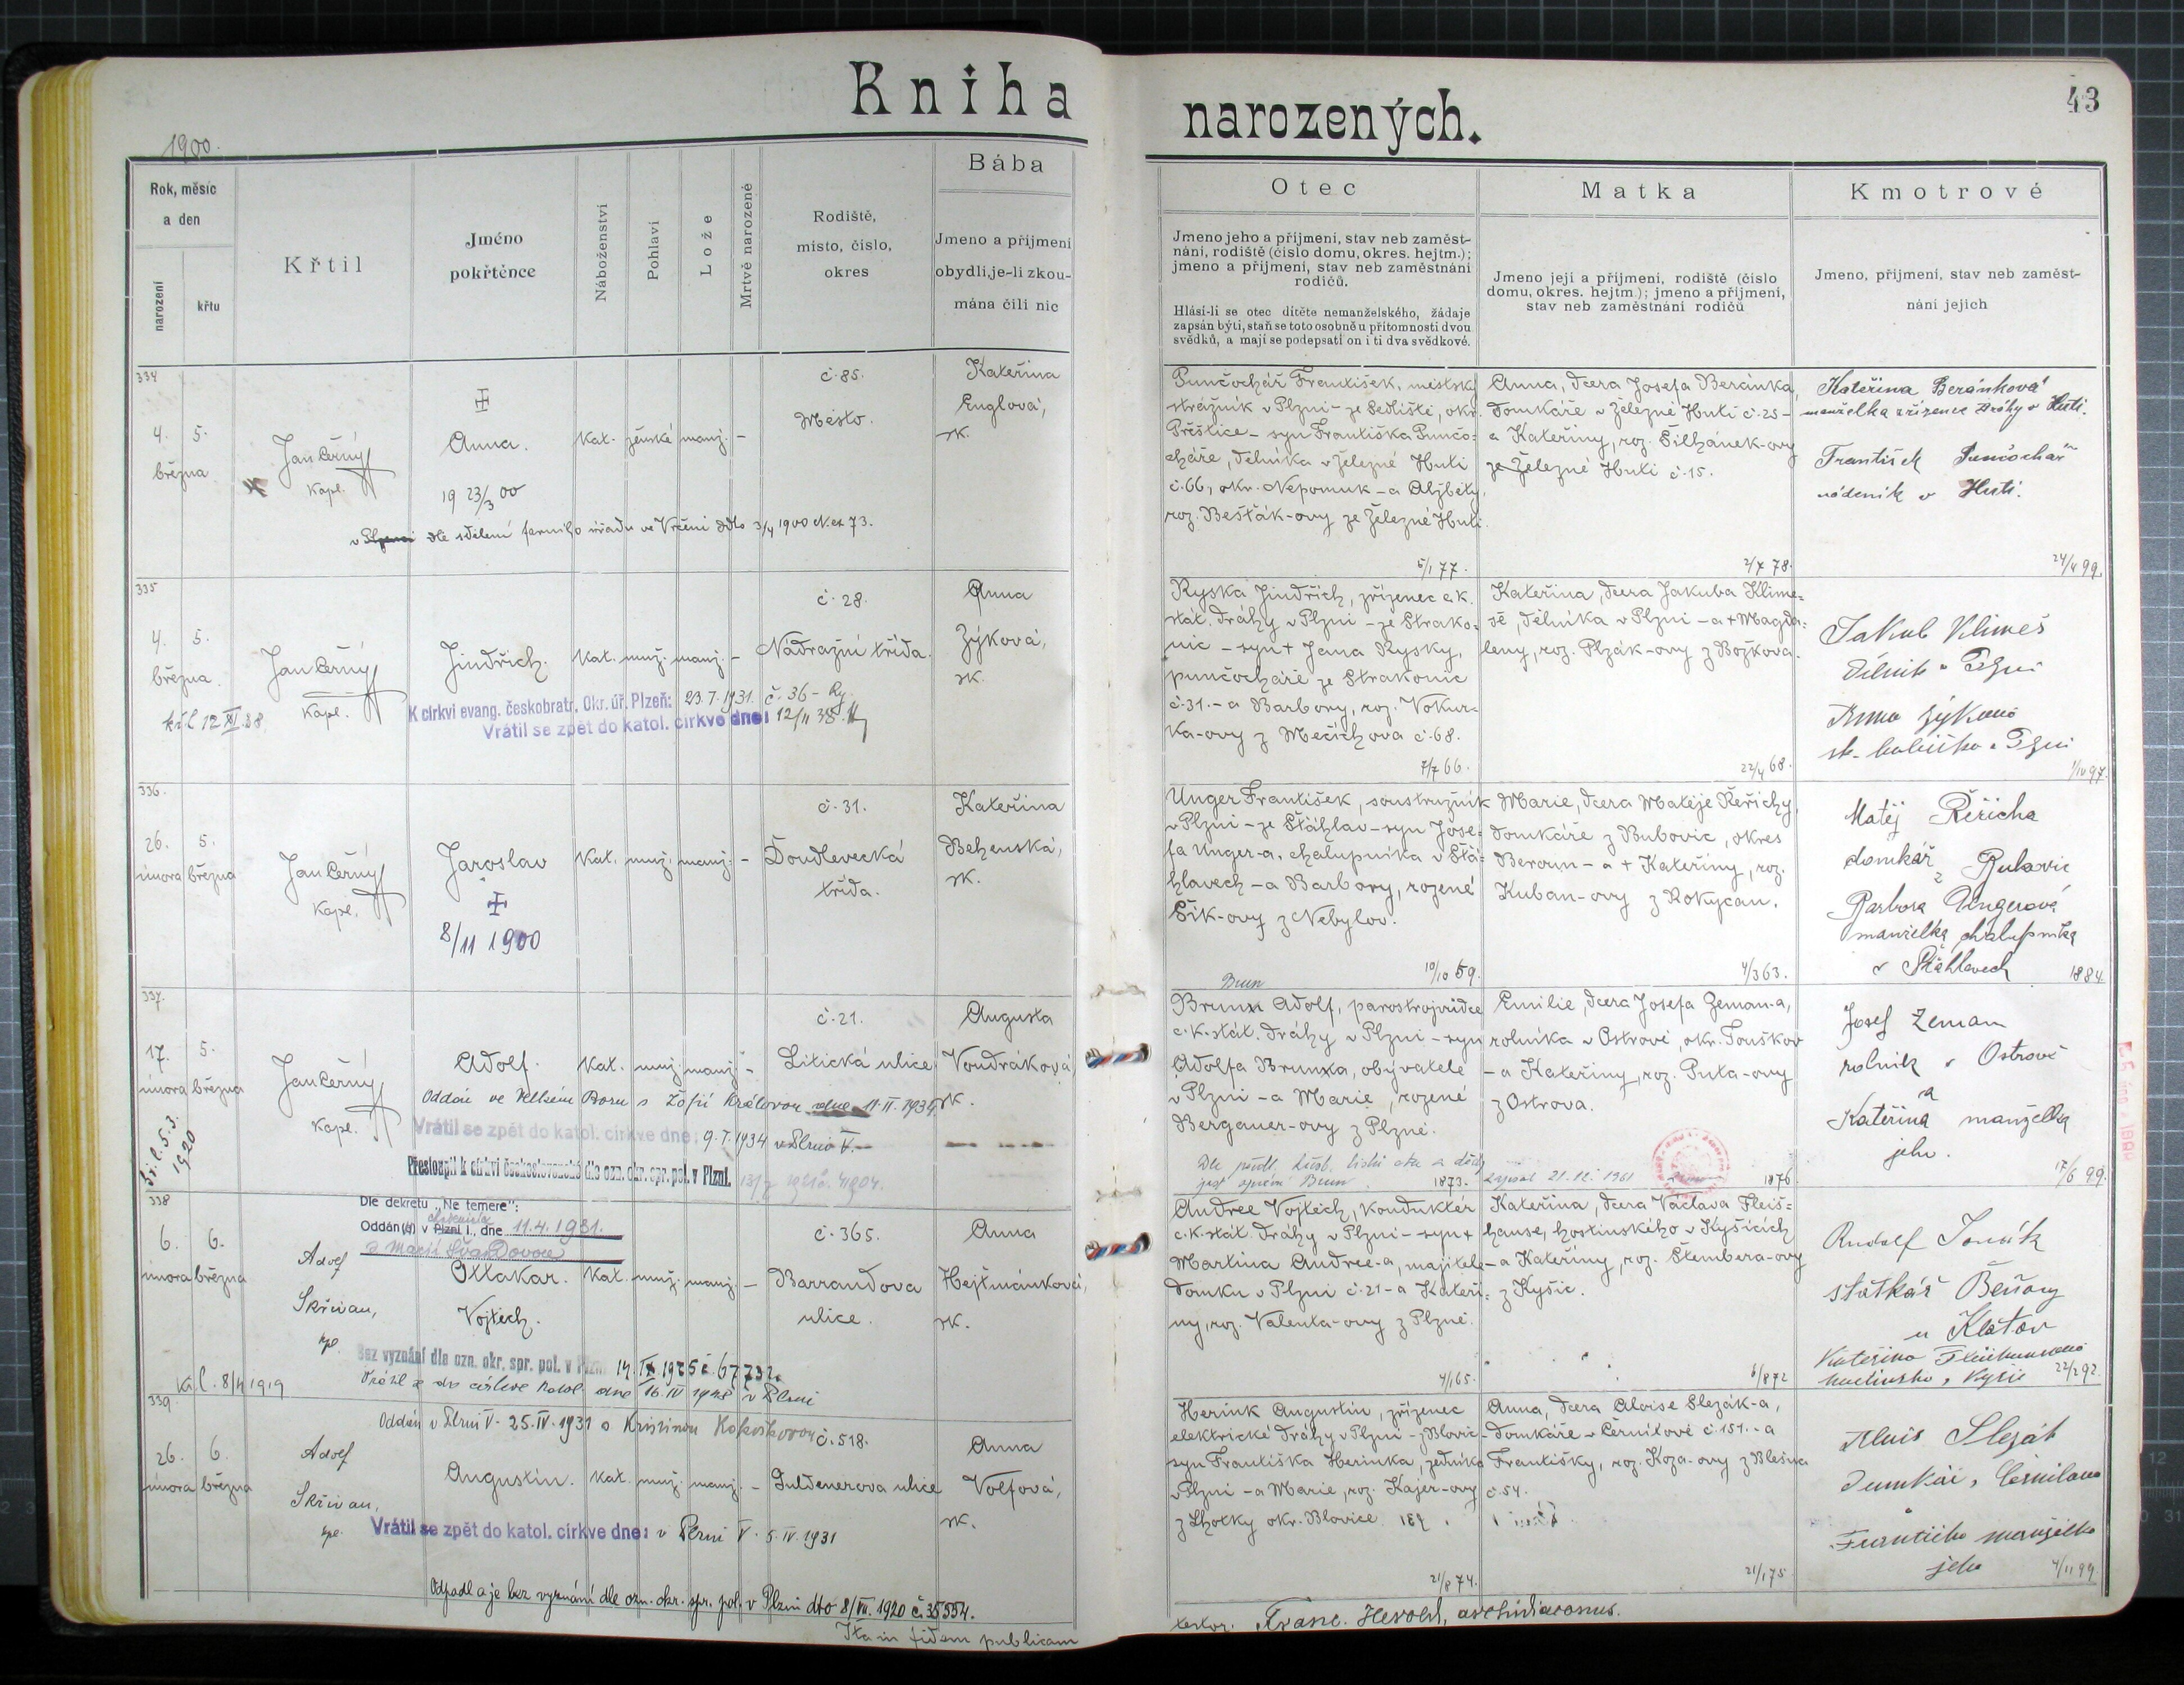 Kniha
narozených.
43
1900.
Rok, měsíc
a den
narození
křtu
Křtil
Jméno
pokřtěnce
Náboženství
Pohlaví
Lože
Mrtvě narozené
Rodiště,
místo, číslo,
okres
Bába
Jmeno a příjmení
obydlí, je-li zkou-
mána čili nic
Otec
Jmeno jeho a příjmení, stav neb zaměst-
nání, rodiště (číslo domu, okres. hejtm.);
jmeno a příjmení, stav neb zaměstnání
rodičů.
Hlásí-li se otec dítěte nemanželského, žádaje
zapsán býti, staň se toto osobně u přítomnosti dvou
svědků, a mají se podepsati on i ti dva svědkové.
Matka
Jmeno její a příjmení, rodiště (číslo
domu, okres. hejtm.); jmeno a příjmení,
stav neb zaměstnání rodičů
Kmotrové
Jmeno, příjmení, stav neb zaměst-
nání jejich
334
4. 5.
března
Jan Černý
kapl.
Anna.
19 23/3 00
kat. ženské manž. -
č. 85.
Město.
Kateřina
Englová,
zk.
v Plzni dle sdělení farního úřadu ve Vrčeni ddto 3/4 1900 N. ex 73.
Punčochář František, městský
strážník v Plzni - ze Sedliště, okr.
Přeštice - syn Františka Punčo-
cháře, dělníka v Železné Huti
č. 66, okr. Nepomuk - a Alžběty,
roz. Bešťák-ovy ze Železné Huti.
5/1 77.
Anna, dcera Josefa Beránka,
domkáře v Železné Huti č. 25 -
a Kateřiny, roz. Šilhánek-ovy
ze Železné Huti č. 15.
2/7 78.
Kateřina Beránková
manželka zřízence dráhy v Huti.
František Punčochář
nádeník v Huti.
24/4 99.
335
4. 5.
března.
Jan Černý
kapl.
Jindřich.
kat. muž. manž. -
č. 28.
Nádražní třída.
Anna
Zýková,
zk.
K církvi evang. českobratr. Okr. úř. Plzeň: 23.7.1931. č. 36 - Ry.
Vrátil se zpět do katol. církve dne: 12/11 38.
kř. l. 12 XI. 38
Ryska Jindřich, zřízenec c. k.
stát. dráhy v Plzni - ze Strako-
nic - syn + Jana Rysky,
punčocháře ze Strakonic
č. 31. - a Barbory, roz. Vokur-
ka-ovy z Mečichova č. 68.
7/7 66.
Kateřina, dcera Jakuba Klime-
še, dělníka v Plzni - a + Magda-
leny, roz. Plzák-ovy z Božkova.
22/4 68.
Jakub Klimeš
dělník v Plzni
Anna Zýková
zk. babička v Plzni
1/10 97.
336.
26. 5.
února března
Jan Černý
kapl.
Jaroslav
8/11 1900
kat. muž. manž. -
č. 31.
Doudlevecká
třída.
Kateřina
Behenská,
zk.
Unger František, soustružník
v Plzni - ze Štáhlav - syn Jose-
fa Unger-a, chalupníka v Štá-
hlavech - a Barbory, rozené
Šik-ovy z Nebylov.
10/10 59.
Marie, dcera Matěje Řeřichy,
domkáře z Bubovic, okres
Beroun - a + Kateřiny, roz.
Kuban-ovy z Rokycan.
4/3 63.
Matěj Řeřicha
domkář z Bubovic
Barbora Ungerová
manželka chalupníka
v Štáhlavech 1884.
337.
17. 5.
února března
Jan Černý
kapl.
Adolf.
kat. muž. manž. -
č. 21.
Litická ulice
Augusta
Voudráková,
zk.
Oddán ve Velkém Boru s Žofií Královou dne 11. II. 1934.
Vrátil se zpět do katol. církve dne: 9. I. 1934 v Plzni V.
Přestoupil k církvi československé dle ozn. okr. spr. pol. v Plzni.
kř. l. 5. 3.
1920
Brun
Brunx Adolf, parostrojvůdce
c. k. stát. dráhy v Plzni - syn
Adolfa Brunxa, obyvatele
v Plzni - a Marie, rozené
Bergauer-ovy z Plzně.
1873.
Emilie, dcera Josefa Zeman-a,
rolníka v Ostrově, okr. Touškov
- a Kateřiny, roz. Puta-ovy
z Ostrova.
21. 12. 1961
1876
Josef Zeman
rolník v Ostrově
a
Kateřina manželka
jeho.
17/6 99.
338
6. 6.
února března
Dle dekretu „Ne temere“:
Oddán(a) v Plzni I., dne 11.4.1931.
s Marií Švandovou
Adolf
Skřivan,
kpl.
Ottakar.
Vojtěch.
kat. muž. manž. -
č. 365.
Barrandova
ulice.
Anna
Hejtmánková,
zk.
Bez vyznání dle ozn. okr. spr. pol. v Plzni 14. IX 1925 č. 67732.
Vrátil se do církve katol. dne 16. IV 1928 v Plzni
kř. l. 8/4 1919
Andree Vojtěch, konduktér
c. k. stát. dráhy v Plzni - syn +
Martina Andree-a, majitele
domku v Plzni č. 21 - a Kateři-
ny, roz. Valenta-ovy z Plzně.
4/1 65.
Kateřina, dcera Václava Fleiš-
hanse, hostinského v Kyšicích
- a Kateřiny, roz. Štembera-ovy
z Kyšic.
6/8 72
Rudolf
statkář Beňovy
u Klatov
Kateřina
22/2 92.
339
26. 6.
února března
Oddán v Plzni V. 25. IV. 1931 s Kristinou Kokoškovou
Adolf
Skřivan,
kpl.
Augustin.
kat. muž. manž. -
č. 518.
Guldenerova ulice
Anna
Volfová,
zk.
Vrátil se zpět do katol. církve dne: v Plzni V. 5. IV. 1931
Odpadl a je bez vyznání dle ozn. okr. spr. pol. v Plzni dto 8/VII. 1920 č. 35554.
Herink Augustin, zřízenec
elektrické dráhy v Plzni - z Blovic -
syn Františka Herinka, zedníka
v Plzni - a Marie, roz. Kajer-ovy
z Lhotky okr. Blovice
21/8 74.
Anna, dcera Aloise Slezák-a,
domkáře v Černíkově č. 151. - a
Františky, roz. Koza-ovy z Blešna
č. 54.
21/1 75
Alois Slezák
domkář,
Františka manželka
jeho 4/11 99.
Ita in fidem publicam
testor. Franc. Herold, archidiaconus.